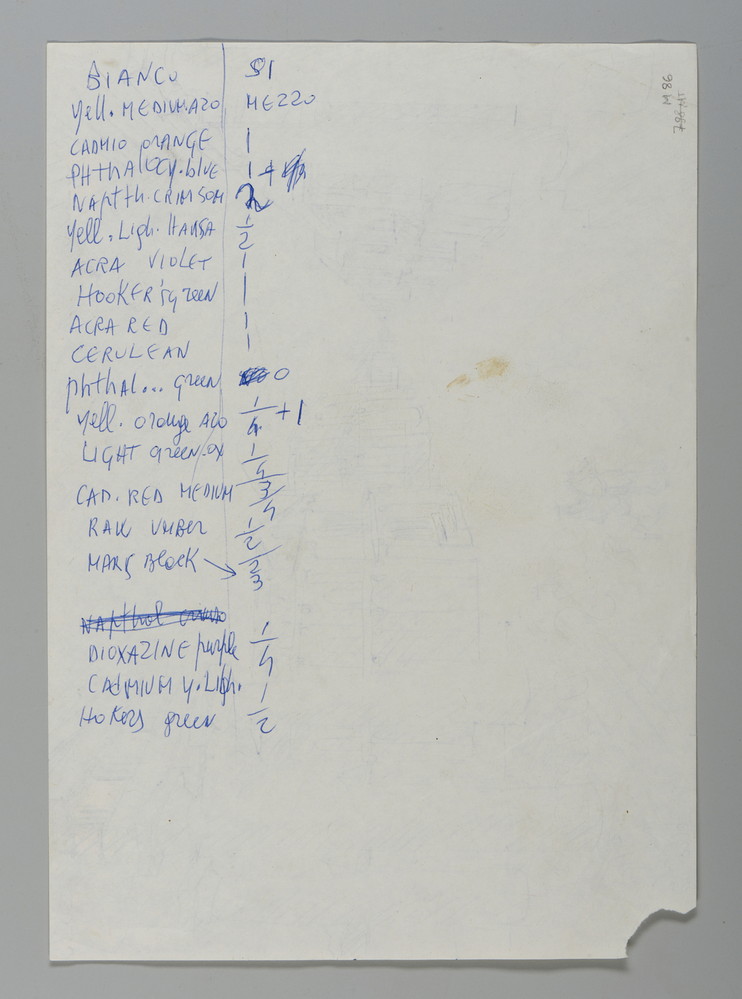 BIANCO SI
Yell. MEDIUM.AZO MEZZO
CADMIO ORANGE 1
PHthALOCY.blue 1 +
NAptth.CRIMSOM 2
Yell. Ligh. HANSA 1/2
ACRA VIOLET 1
HOOKER'S green 1
ACRA RED 1
CERULEAN 1
phthal... green 0
Yell. orange AZO 1/4 +1
LIGHT green.ox 1/4
CAD. RED MEDIUM 3/4
RAW UMBER 1/2
MARS Black 2/3
NApthol
DIOXAZINE purple 1/4
CADMIUM y. Ligh. 1
HoKers green 1/2
M 86
786 MT